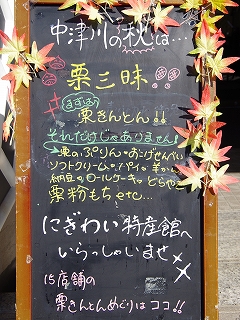 中津川の秋は…
栗三昧
まずは
栗きんとん!!
それだけじゃありません!
栗のぷりん・おこげせんべい
ソフトクリーム
ロールケーキ・どらやき
栗粉もち etc…
にぎわい特産館へ
いらっしゃいませ
15店舗の
栗きんとんめぐりはココ!!